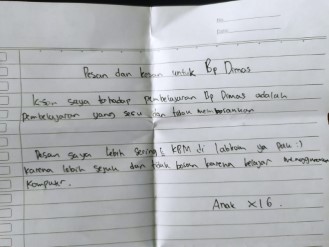 No.
Date.
Pesan dan kesan untuk Bp Dimas
Kesan saya terhadap pembelajaran Bp Dimas adalah
Pembelajaran yang seru dan tidak membosankan
Pesan saya lebih sering² KBM di labkom ya pak :)
karena lebih sejuk dan tidak bosan karena belajar menggunakan
Komputer.
Anak X16.